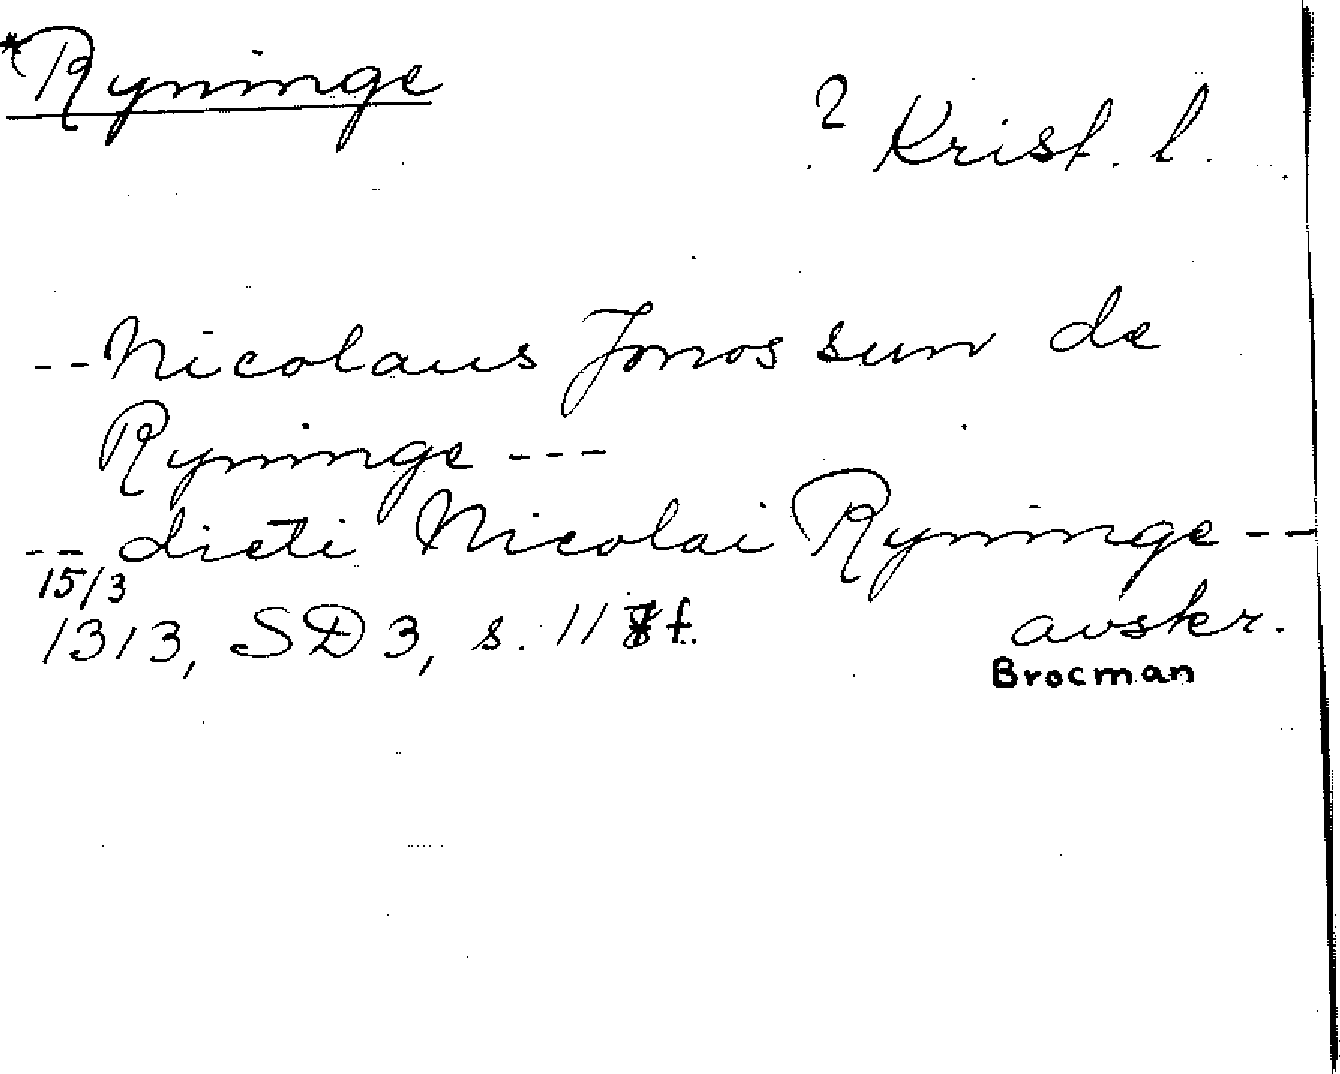 *Ryninge
? Krist. l.
--Nicolaus Jonos sun de
Ryninge ---
-- dicti Nicolai Ryninge --
15/3
1313, SD 3, s. 11 f. avskr.
Brocman